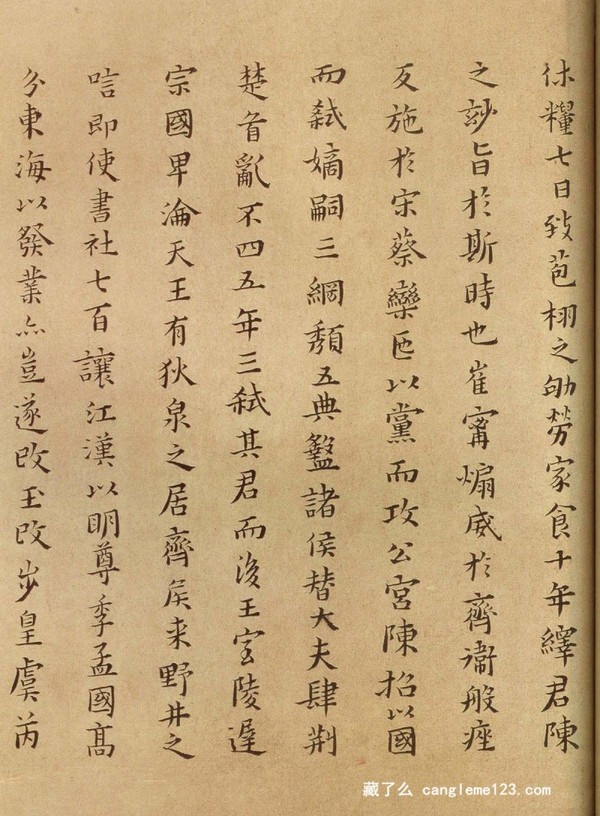 休糧七日致苞栩之劬勞家食十年繹君陳
之訬旨於斯時也崔甯煽威於齊衞般痤
反施於宋蔡欒叵以黨而攻公宮陳招以國
而弑嫡嗣三綱頽五典盭諸侯替大夫肆荆
楚首亂不四五年三弑其君而後王室陵遲
宗國卑淪天王有狄泉之居齊矦来野井之
唁即使書社七百讓江漢以明尊季孟國髙
分東海以發業亦豈遂改玉改步皇虞芮
藏了么 cangleme123.com